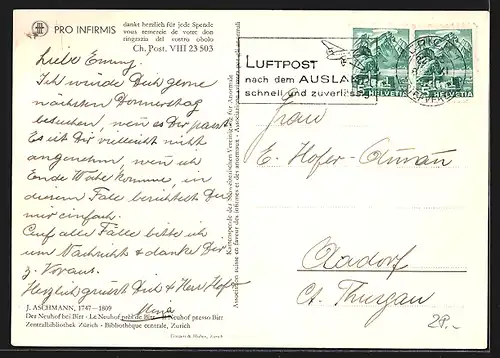 PRO INFIRMIS
dankt herzlich für jede Spende
vous remercie de votre don
ringrazia del vostro obolo
Ch. Post. VIII 23 503
Liebe Emmy.
Ich würde Dich gerne
nächsten Donnerstag
besuchen, wen es Dir passt.
Es ist Dir vielleicht nicht
angenehm, wen ich
Ende Woche komme, in
diesem Falle berichtest Du
mir einfach.
Auf alle Fälle bitte ich
um Nachricht & danke Dir
z. Voraus.
Herzlich grüsst Dich & Herr Hofer
Mina
J. ASCHMANN, 1747—1809
Der Neuhof bei Birr - Le Neuhof près de Birr - Il Neuhof presso Birr
Zentralbibliothek Zürich - Bibliothèque centrale, Zurich
Kartenspende der Schweizerischen Vereinigung für Anormale
Association suisse en faveur des infirmes et des anormaux
LUFTPOST
nach dem AUSLAND
schnell und zuverlässig
HELVETIA
HELVETIA
Frau
E. Hofer-
Aadorf
Ct. Thurgau
28.-